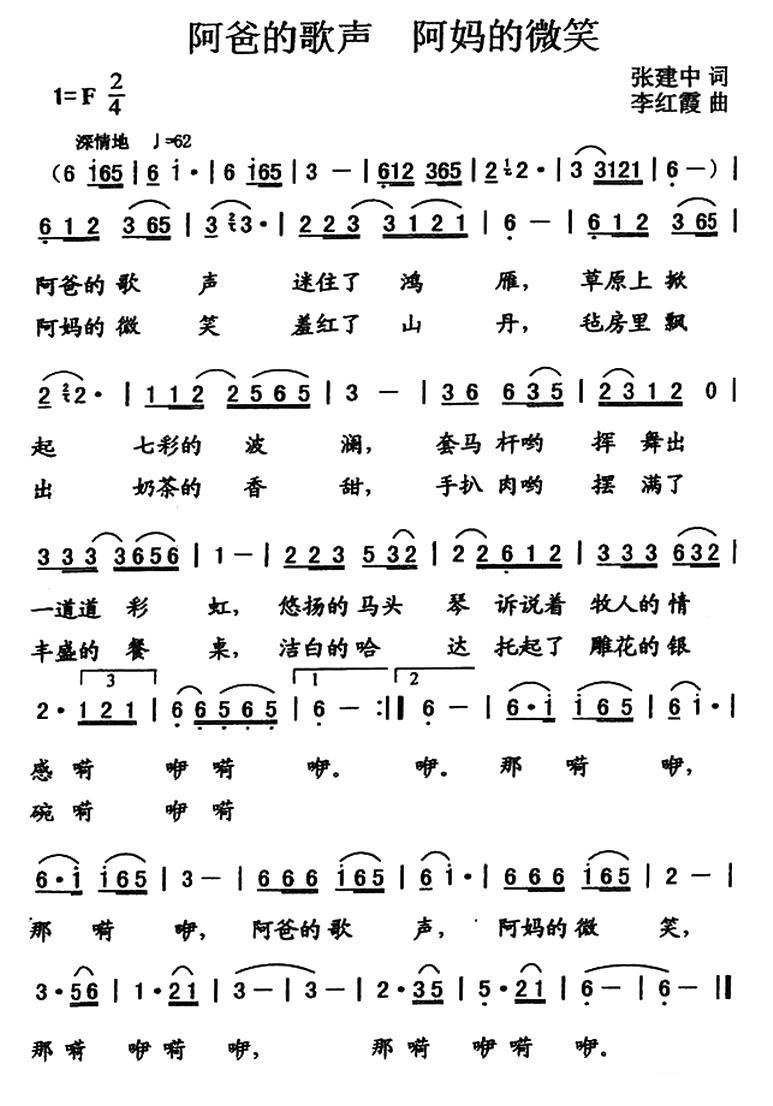 阿爸的歌声 阿妈的微笑
1=F 2/4
张建中 词
李红霞 曲
深情地 ♩=62
（6 i65 | 6 i· | 6 i65 | 3 — | 612 365 | 2 2· | 3 3121 | 6 —）|
6 1 2 3 65 | 3 3· | 2 2 3 3 1 2 1 | 6 — | 6 1 2 3 65 |
阿爸的 歌 声 迷住了 鸿 雁， 草原上 掀
阿妈的 微 笑 羞红了 山 丹， 毡房里 飘
2 2· | 1 1 2 2 5 6 5 | 3 — | 3 6 6 3 5 | 2 3 1 2 0 |
起 七彩的 波 澜， 套马 杆哟 挥 舞出
出 奶茶的 香 甜， 手扒 肉哟 摆 满了
3 3 3 3 6 5 6 | 1 — | 2 2 3 5 3 2 | 2 2 6 1 2 | 3 3 3 6 3 2 |
一道道 彩 虹， 悠扬的 马头 琴 诉说着 牧人的 情
丰盛的 餐 桌， 洁白的 哈 达 托起了 雕花的 银
3 1 2
2· 1 2 1 | 6 6 5 6 5 | 6 — :‖ 6 — | 6·i i 6 5 | 6 i· |
感 嗬 咿 嗬 咿。 咿。 那 嗬 咿，
碗 嗬 咿 嗬
6·i i 6 5 | 3 — | 6 6 6 i 6 5 | 6 i· | 6 6 6 i 6 5 | 2 — |
那 嗬 咿， 阿爸的 歌 声， 阿妈的 微 笑，
3· 5 6 | 1· 2 1 | 3 — | 3 — | 2· 3 5 | 5· 2 1 | 6 — | 6 — ‖
那 嗬 咿 嗬 咿， 那 嗬 咿 嗬 咿。